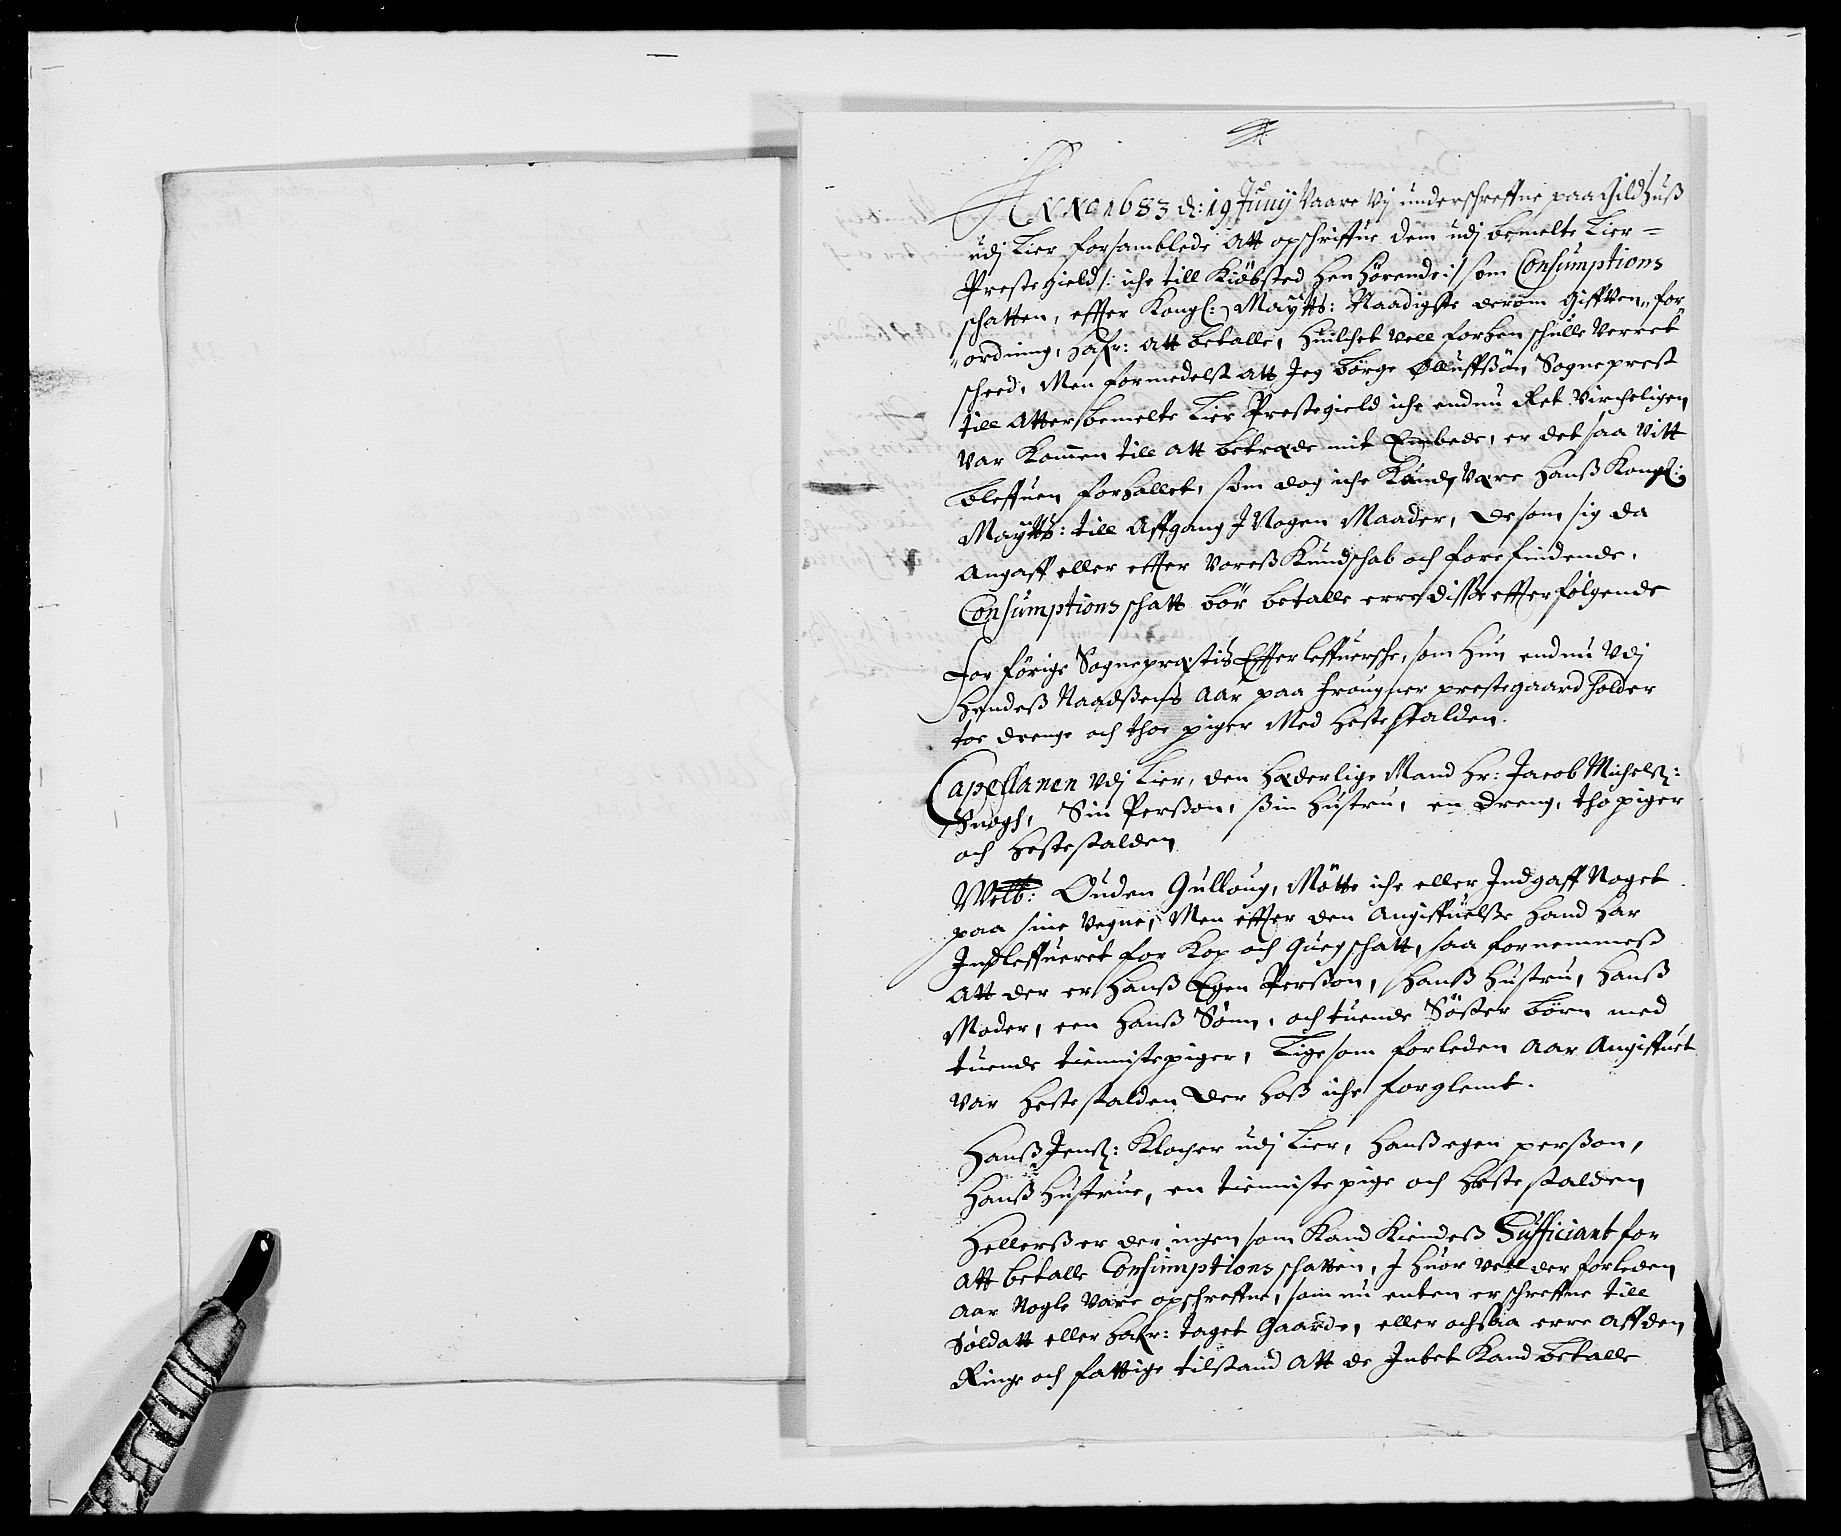 ANNO 1683 d: 19 Junij Vaare Vj underschreffne paa Gildhuß
udj Lier forsamblede Att opschriffue dem udj bemelte Lier=
Prestegield /: iche till Kiöbsted hen hörende :/ som Consumptions
schatten, effter Kongl: Maytts: Naadigste derom giffven for
ordning, hafr: att betalle, huilchet vell forhen schulle verret
scheed, Men formedelst att Jeg Börge Ollufßön Sogneprest
till atterbemelte Lier Prestegield iche endnu Ret Vircheligen
var Kommen till att betræde mit Embede, er det saa vitt
bleffuen forhallet, som dog iche Kand være Hanß Kongl:
Maytts: till Affgang J Nogen Maader, de som sig da
Angaff eller effter voreß Kundschab och forefindende,
Consumptionsschatt bör betalle erre diße effterfölgende
For förige Sognepræstis Effterleffuersche, som hun endnu Udj
hendeß Naadßens Aar paa Frougner prestegaard holder
toe drenge och thoe piger Med hestestalden.
Capellanen Udj Lier, den Hæderlige Mand Hr: Jacob Michelß:
Snogh, Sin Perßon, ßin hustru, en Dreng, tho piger
och hestestalden
Welb: Ouden Gulloug, Mötte iche eller Indgaff Noget
paa sine vegne, Men effter den Angiffuelße hand har
Indleffueret for Kop och quegschatt, saa fornemmeß
Att der er Hanß Egen Perßon, Hanß Hustru, Hanß
Moder, een Hanß Sönn, och tuende Sößter börn med
tuende tiennistepiger, Ligesom forleden Aar Angiffuet
var hestestalden der hoß iche forglemt.
Hanß Jenß: Klocher udj Lier, Hanß egen perßon,
Hanß Hustrue, en tiennistepige och hestestalden
Hellerß er der ingen som Kand Kiendeß Sufficiant for
att betalle Consumptionsschatten, J huor vell der forleden
Aar Nogle vare opschreffne, som nu enten er schreffne till
Soldatt eller hafr: taget Gaarde, eller ochsaa erre aff den
Ringe och fattige tilstand att de Intet Kand betalle